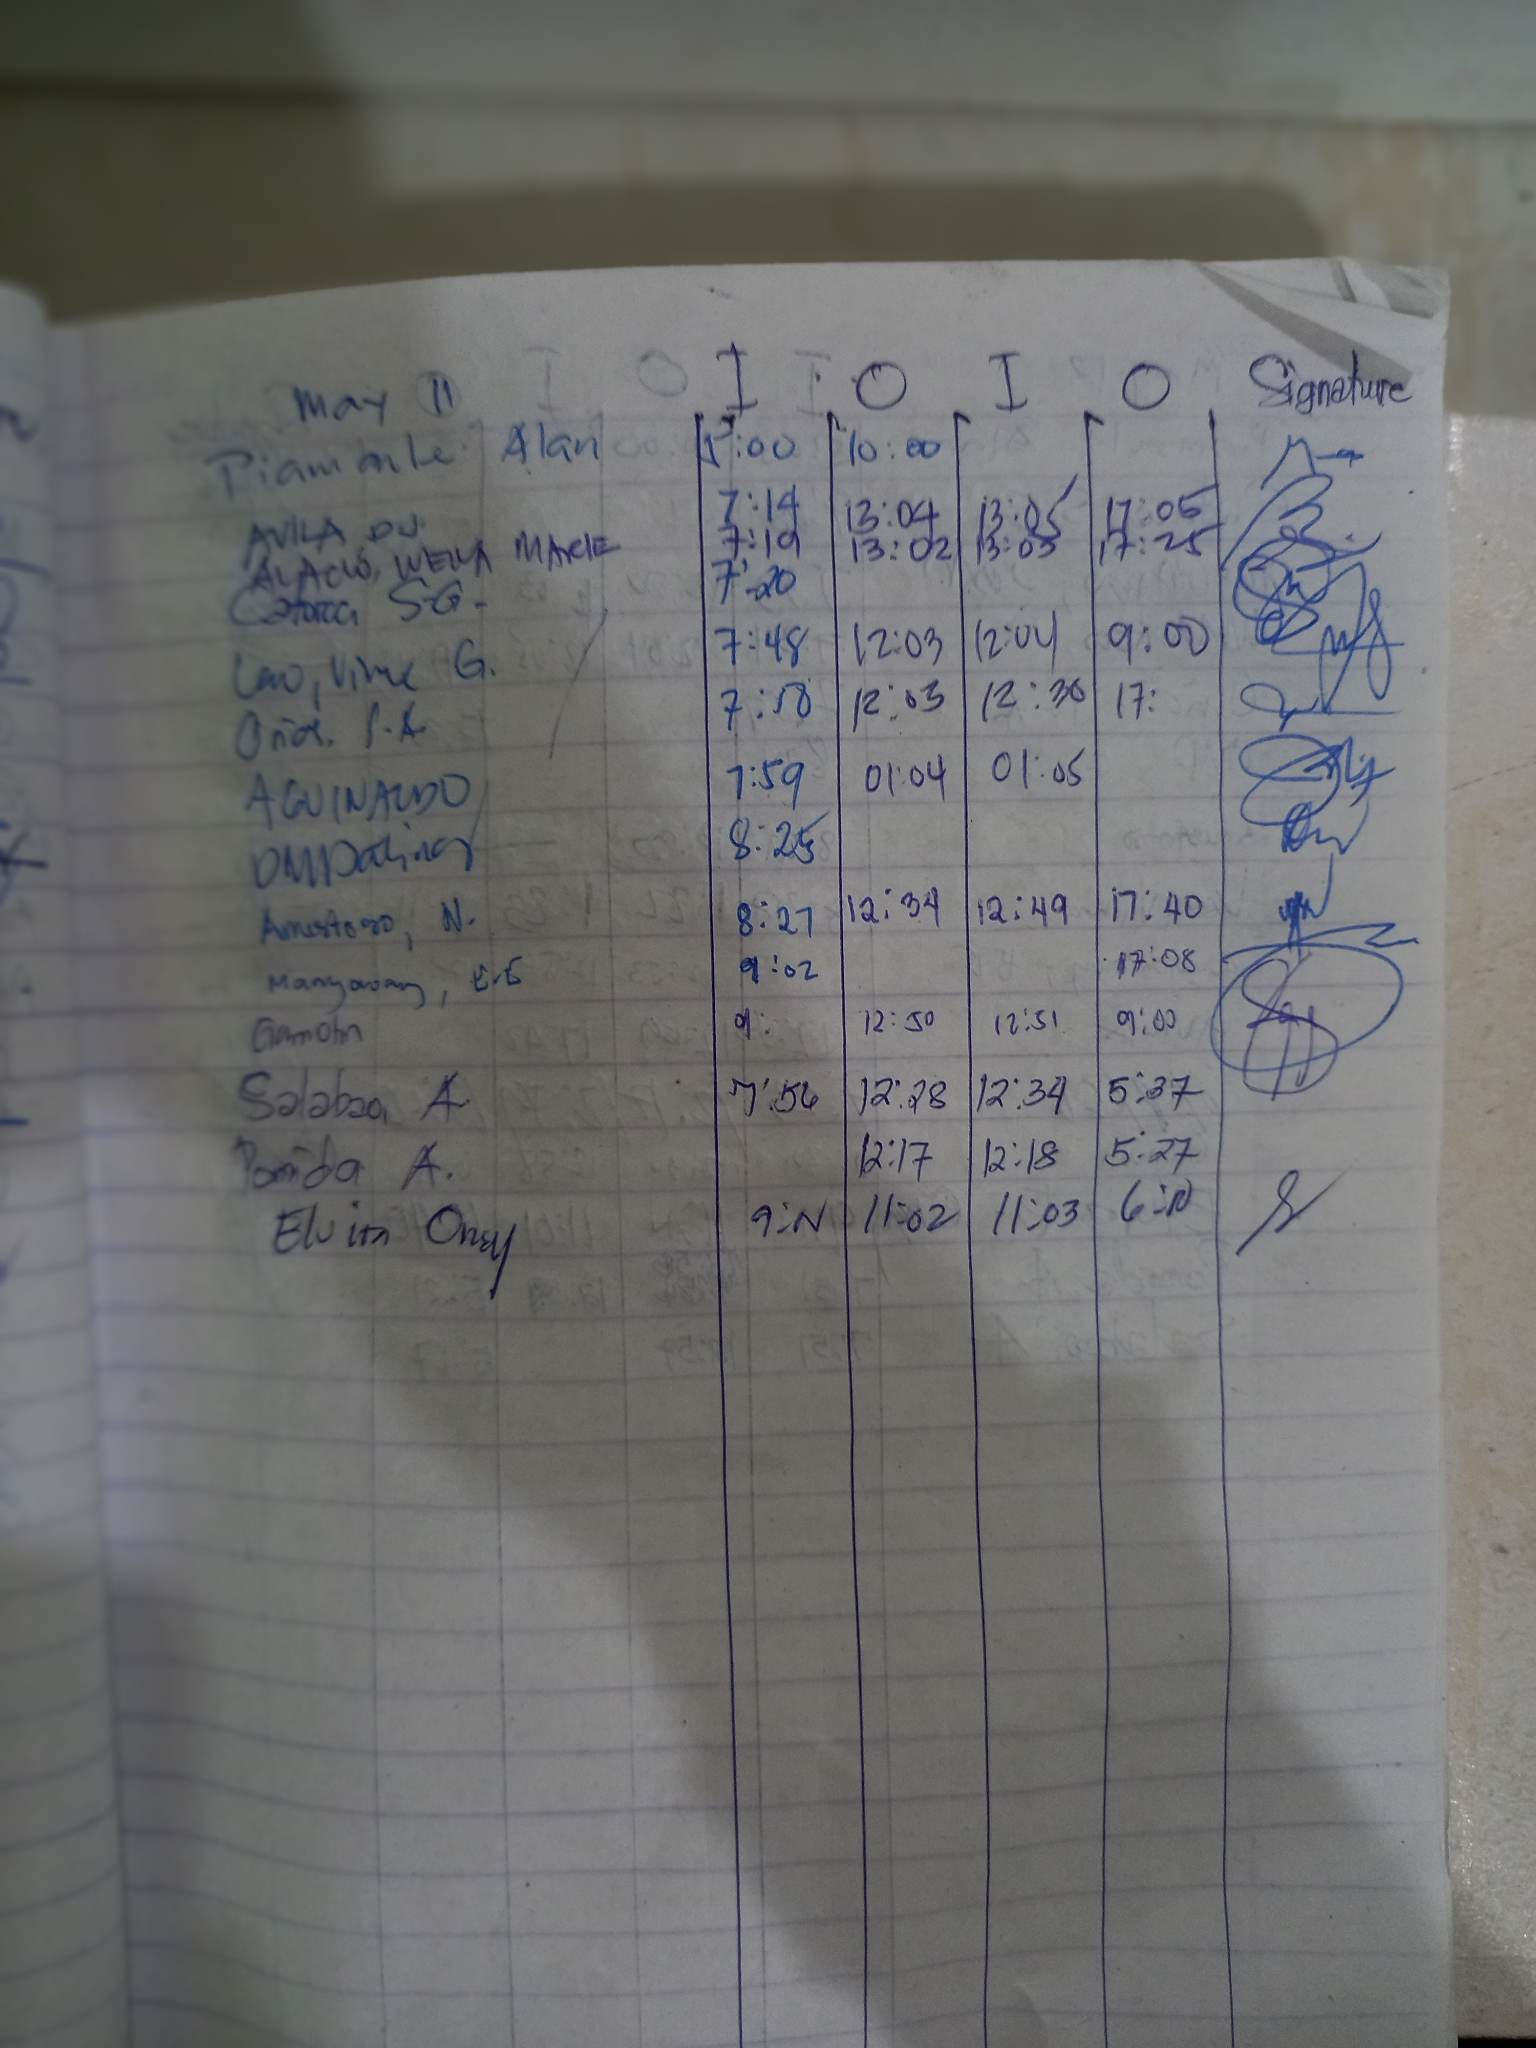 May 11 I O I O Signature
Piamonte Alan 5:00 10:00
AVILA DV. 7:14 13:04 13:05 17:05
ALACIO, WENA MARIE 7:19 13:02 13:03 17:25
S.G. 7:20
Lao, Vince G. 7:48 12:03 12:04 9:00
7:58 12:03 12:30 17:
AGUINALDO 7:59 01:04 01:05
8:25
N. 8:27 12:34 12:49 17:40
E.E 9:02 17:08
Gamotin 9: 12:50 12:51 9:00
Salabao A 7:56 12:28 12:34 5:37
Pomida A. 12:17 12:18 5:27
Elvin Ongy 9:N 11:02 11:03 6:N